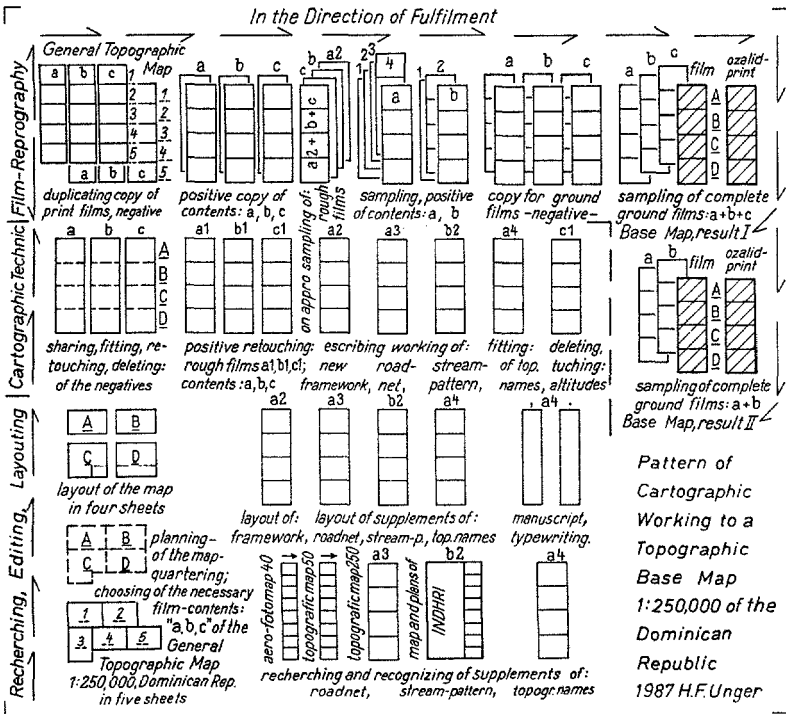 In the Direction of Fulfilment
Film-Reprography
General Topographic
Map
a b c
1
2 1
3 2
4 3
5 4
5
a b c
duplicating copy of
print films, negative
a b c
positive copy of
contents: a, b, c
c b a2
a2 + b + c
on appro sampling of:
rough films
1 2 3 4
a
1 2
b
sampling, positive
of contents: a, b
a b c
copy for ground
films -negative-
a b c film ozalid-
print
A
B
C
D
sampling of complete
ground films: a+b+c
Base Map, result I
Cartographic Technic
a b c
A
B
C
D
sharing, fitting, re-
touching, deleting:
of the negatives
a1 b1 c1
positive retouching:
rough films a1, b1, c1;
contents: a, b, c
a2 a3 b2
escribing working of:
new road- stream-
framework, net, pattern,
a4
fitting:
of top.
names,
c1
deleting,
tuching:
altitudes
a b film ozalid-
print
A
B
C
D
sampling of complete
ground films: a+b
Base Map, result II
Layouting
A B
C D
layout of the map
in four sheets
a2 a3 b2 a4
layout of: layout of supplements of:
framework, roadnet, stream-p., top.names
, a4 .
manuscript,
typewriting.
Recherching, Editing,
A B
C D
planning-
of the map-
quartering;
choosing of the necessary
film-contents:
"a, b, c" of the
General
Topographic Map
1:250,000, Dominican Rep.
in five sheets
1 2
3 4 5
aero-fotomap 40
topografic map 50
topografic map 250
a3
map and plans of
b2
INDHRI
a4
recherching and recognizing of supplements of:
roadnet, stream-pattern, topogr.names
Pattern of
Cartographic
Working to a
Topographic
Base Map
1:250,000 of the
Dominican
Republic
1987 H.F. Unger